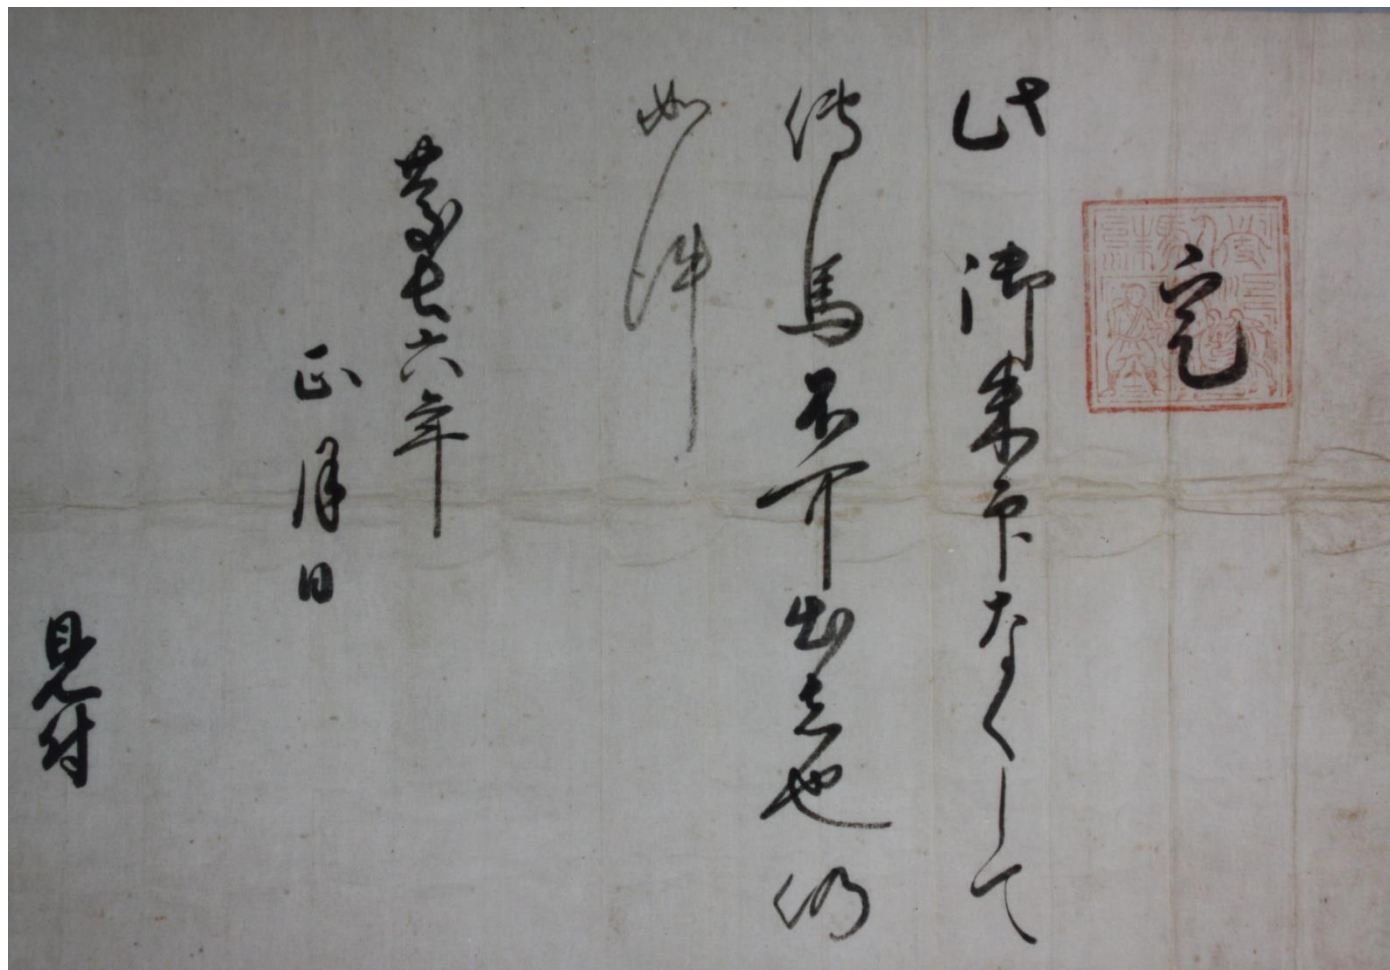 定
此御朱印なくして
伝馬不可出者也仍
如件
慶長六年
正月日
見付